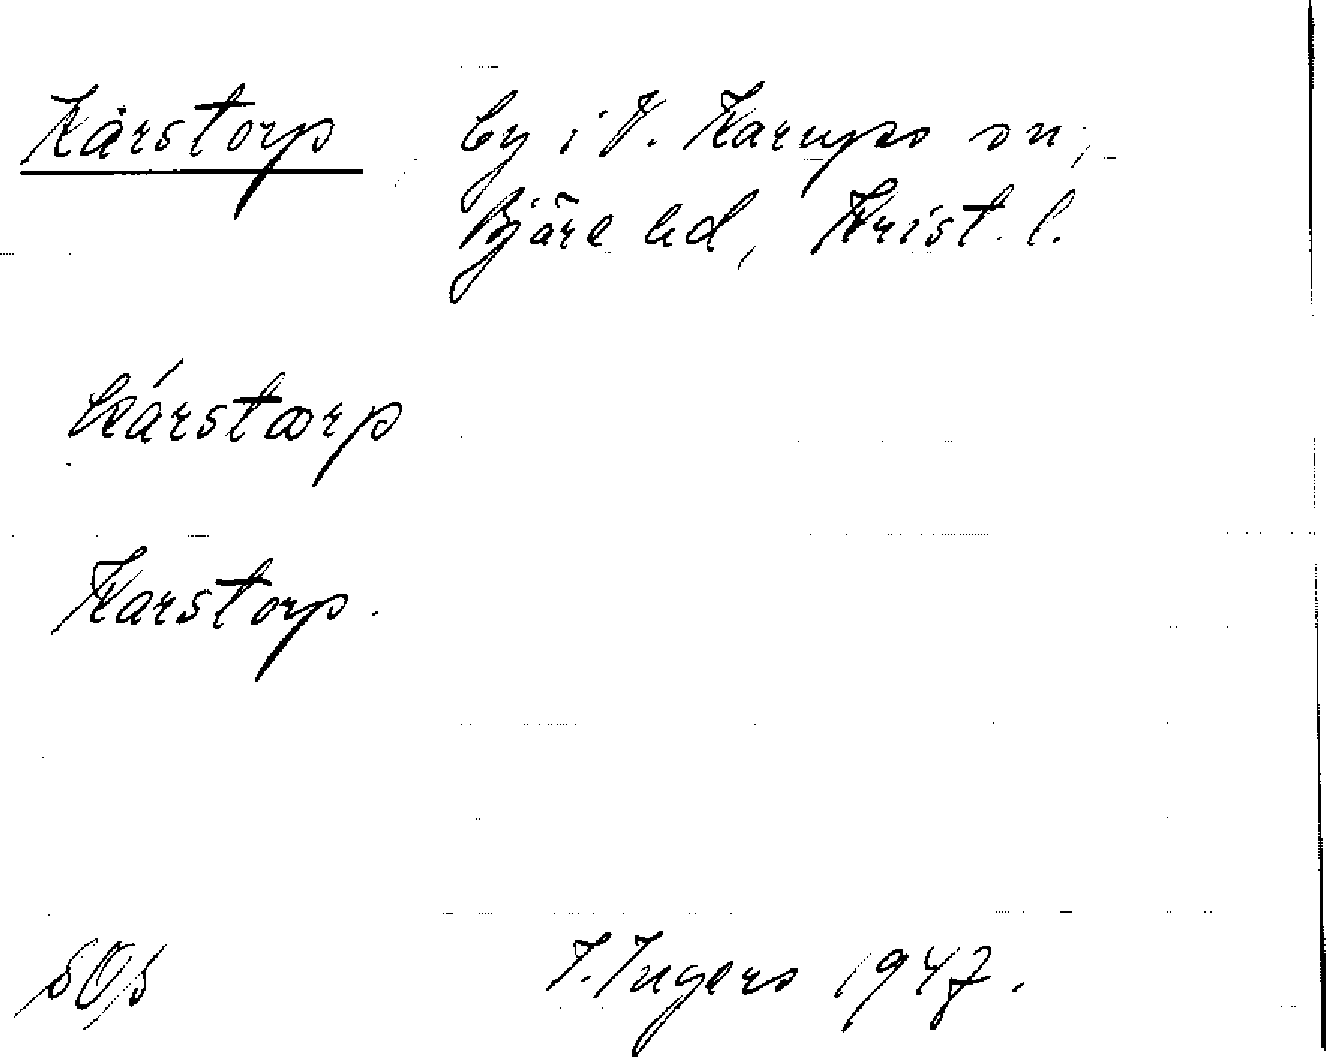 Kårstorp, by i V. Karups sn,
Bjäre hd, Krist. l.
kárstorp
Karstorp.
SOS I. Ingers 1947.